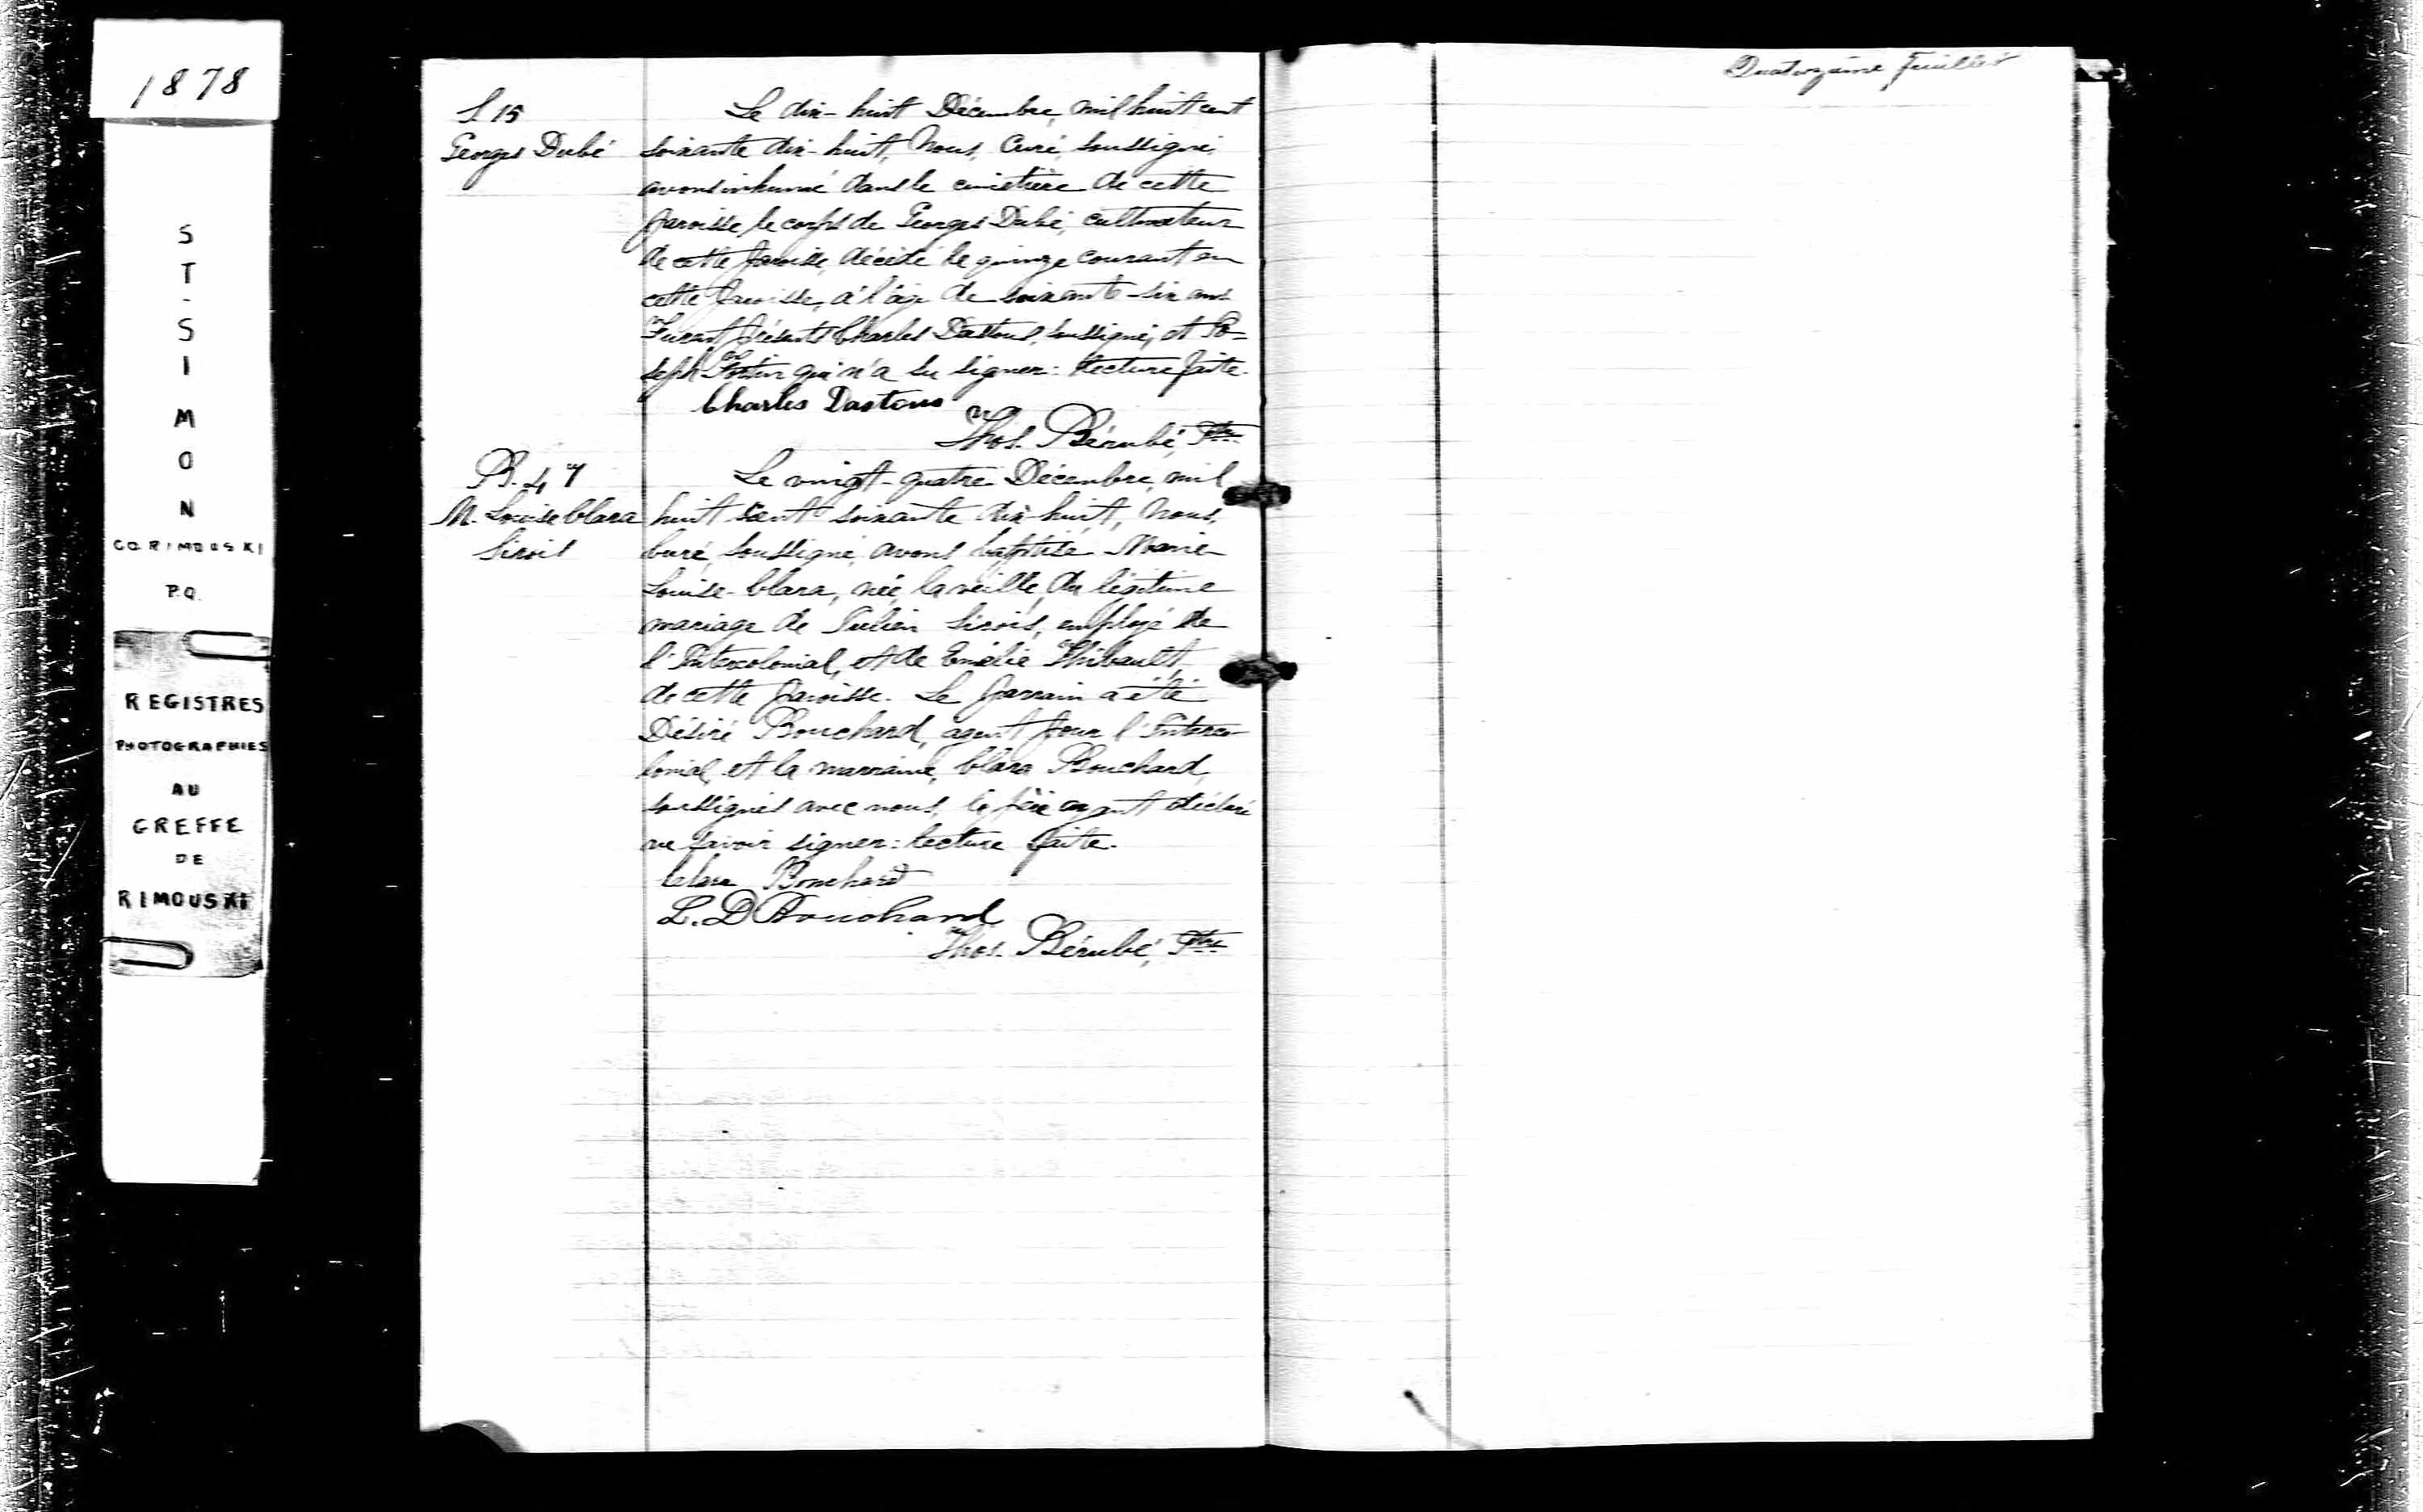 1878
ST-SIMON
CO. RIMOUSKI
P.Q.
REGISTRES
PHOTOGRAPHIES
AU
GREFFE
DE
RIMOUSKI
S 15
Georges Dubé
Le dix-huit Décembre, mil huit cent
soixante dix-huit, Nous, Curé, soussigné,
avons inhumé dans le cimetière de cette
paroisse le corps de Georges Dubé, cultivateur
de cette paroisse, décédé le quinze courant en
cette paroisse, à l'âge de soixante-six ans.
Furent présents Charles Dastous, soussigné, et Jo-
seph Fortin qui n'a su signer: lecture faite.
Charles Dastous
Thos. Bérubé, Ptre
B. 47
M. Louise Clara
Sirois
Le vingt-quatre Décembre, mil
huit cent soixante dix-huit, Nous,
Curé, soussigné, avons baptisé Marie
Louise-Clara, née la veille, du légitime
mariage de Julien Sirois, employé de
l'Intercolonial, et de Emélie Thibault,
de cette paroisse. Le parrain a été
Désiré Bouchard, agent pour l'Interco-
lonial, et la marraine, Clara Bouchard,
soussignés avec nous, le père ayant déclaré
ne savoir signer: lecture faite.
Clara Bouchard
L. D Bouchard
Thos. Bérubé, Ptre
Quatorzième feuillet